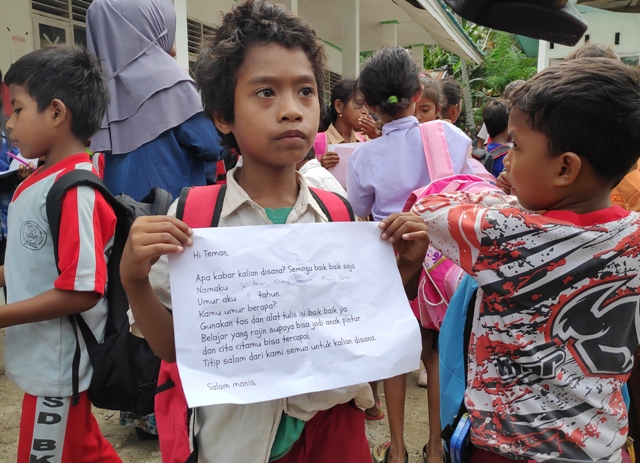 Hi Teman,
Apa kabar kalian disana? Semoga baik baik saja
Namaku
Umur aku tahun.
Kamu umur berapa?
Gunakan tas dan alat tulis ini baik baik ya
Belajar yang rajin supaya bisa jadi anak pintar
dan cita citamu bisa tercapai.
Titip salam dari kami semua untuk kalian disana.
Salam manis,
SD BK